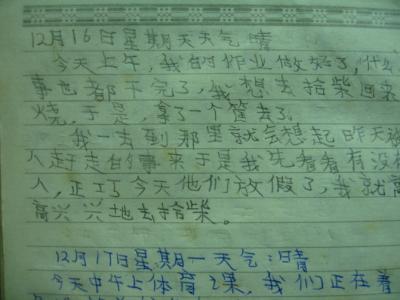 12月16日星期天天气晴
今天上午，我的作业做好了，什么
事也都干完了，我想去拾柴回来
烧，于是，拿了一个筐去了。
我一去到那里就会想起昨天被
人赶走的事来于是我先看看有没有
人，正巧今天他们放假了，我就高
高兴兴地去拾柴。
12月17日星期一天气：晴
今天中午上体育课，我们正在着